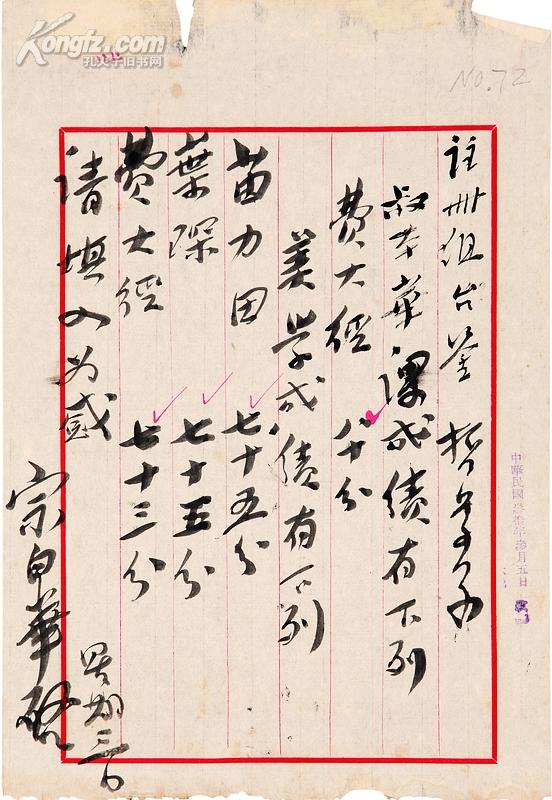 Kongfz.com
孔夫子旧书网
NO.72
註冊組台鉴 哲学系
叔本華課成績有下列
費大經 八十分
美学成績有下列
苗力田 七十五分
葉深 七十五分
費大經 七十三分
请填入为感
宗白華啟
三日
中華民國 年 月五日